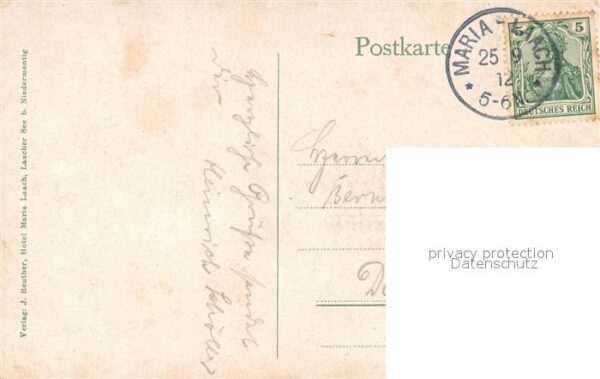 Postkarte
MARIA LAACH
25 9
12
5-6N
5
DEUTSCHES REICH
Herzliche Grüße sendet
Dir
Heinrich
Herrn
Bern
privacy protection
Datenschutz
Verlag: J. Reuther, Hotel Maria Laach, Laacher See b. Niedermendig